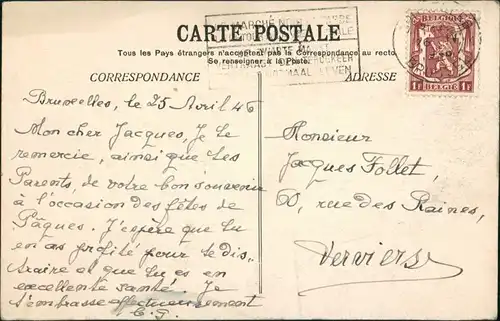 CARTE POSTALE
Tous les Pays étrangers n'acceptent pas la Correspondance au recto.
Se renseigner à la Poste.
CORRESPONDANCE
ADRESSE
BELGIQUE
1F 1F
BELGIE
Bruxelles, le 25 Avril 46
Mon cher Jacques, Je te
remercie, ainsi que tes
Parents, de votre bon souvenir
à l'occasion des fêtes de
Pâques. J'espère que tu
en as profité pour te dis-
traire et que tu es en
excellente santé. Je
t'embrasse affectueusement
Monsieur
Jacques Follet,
60, rue des Raines,
Verviers